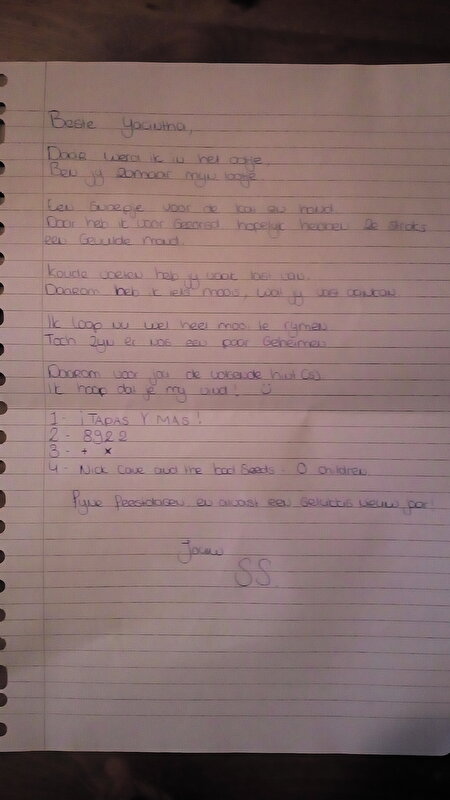 Beste Yacintha,
Daar werd ik in het oogje,
Ben jij zomaar mijn lootje.
Een snoepje voor de kat en hond.
Daar heb ik voor gezorgd hopelijk hebben ze straks
een gevulde mond.
Koude voeten heb jij vaak last van.
Daarom heb ik iets moois, wat jij vast
Ik loop nu wel heel mooi te rijmen
Toch zijn er nog een paar Geheimen
Daarom voor jou de volgende hint(s)
Ik hoop dat je mij vind! ☺
1 - ¡TAPAS Y MAS!
2 - 8922
3 - + x
4 - Nick Cave and the bad Seeds - O children
Fijne feestdagen en alvast een gelukkig nieuw jaar!
Jouw
SS.